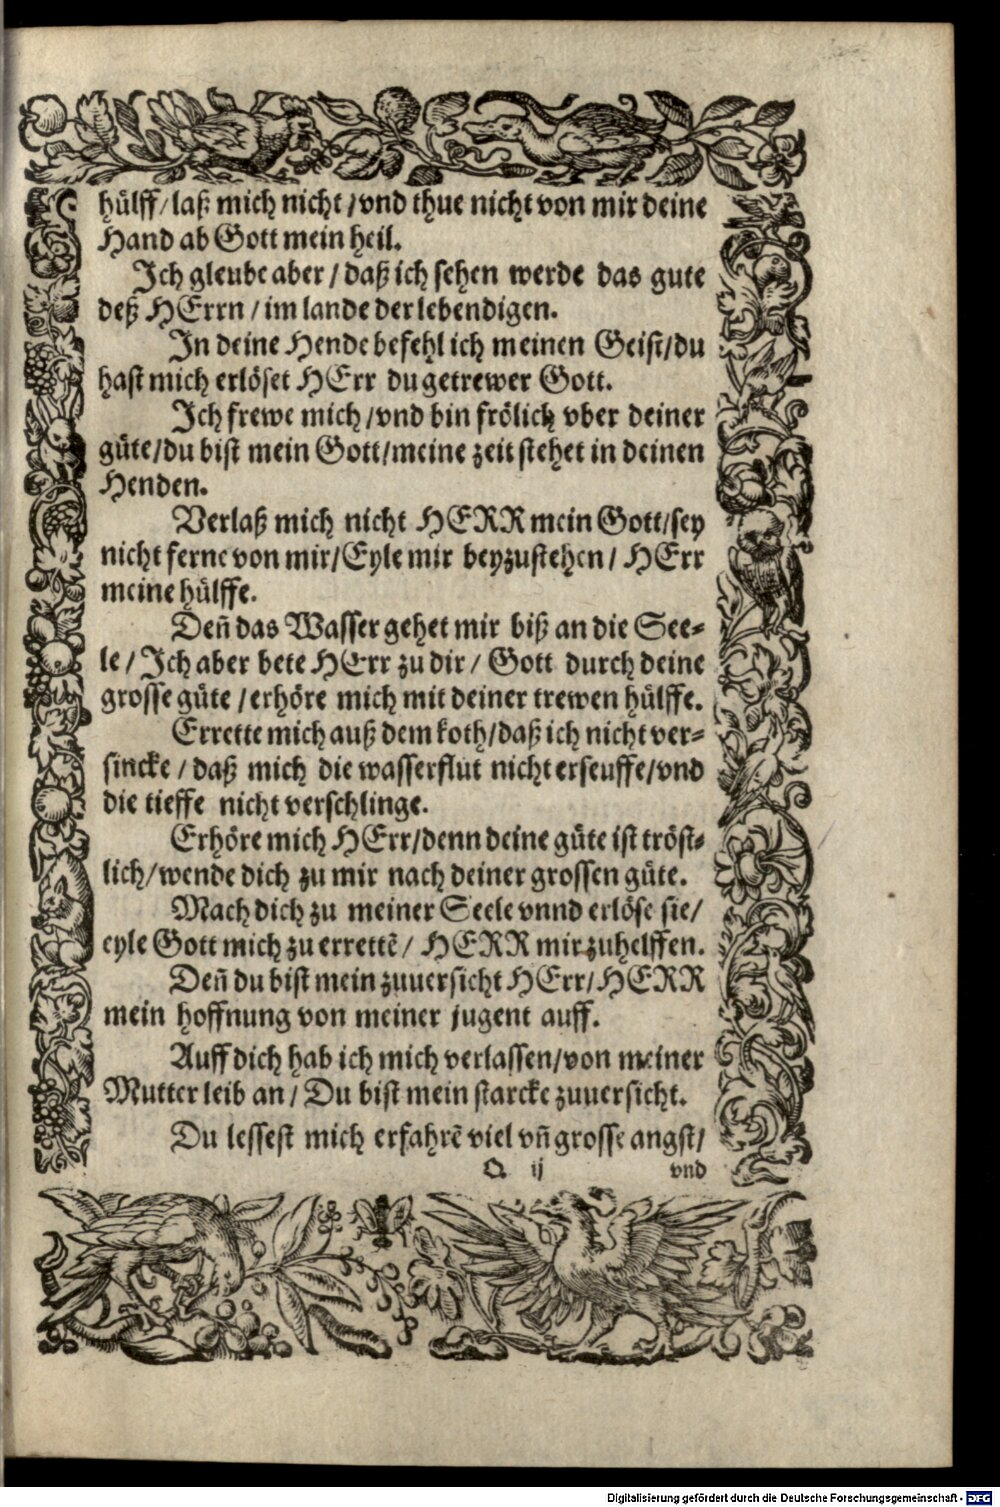 hülff/laß mich nicht/vnd thue nicht von mir deine
Hand ab Gott mein heil.
Ich gleube aber/daß ich sehen werde das gute
deß HErrn/im lande der lebendigen.
In deine Hende befehl ich meinen Geist/du
hast mich erlöset HErr du getrewer Gott.
Ich frewe mich/vnd bin frölich vber deiner
güte/du bist mein Gott/meine zeit stehet in deinen
Henden.
Verlaß mich nicht HERR mein Gott/sey
nicht ferne von mir/Eyle mir beyzustehen/HErr
meine hülffe.
Deñ das Wasser gehet mir biß an die See-
le/Ich aber bete HErr zu dir/Gott durch deine
grosse güte/erhöre mich mit deiner trewen hülffe.
Errette mich auß dem koth/daß ich nicht ver-
sincke/daß mich die wasserflut nicht erseuffe/vnd
die tieffe nicht verschlinge.
Erhöre mich HErr/denn deine güte ist tröst-
lich/wende dich zu mir nach deiner grossen güte.
Mach dich zu meiner Seele vnnd erlöse sie/
eyle Gott mich zu errettẽ/HERR mir zuhelffen.
Deñ du bist mein zuuersicht HErr/HERR
mein hoffnung von meiner jugent auff.
Auff dich hab ich mich verlassen/von meiner
Mutter leib an/Du bist mein starcke zuuersicht.
Du lessest mich erfahrẽ viel vñ grosse angst/
Q ij vnd
Digitalisierung gefördert durch die Deutsche Forschungsgemeinschaft - DFG